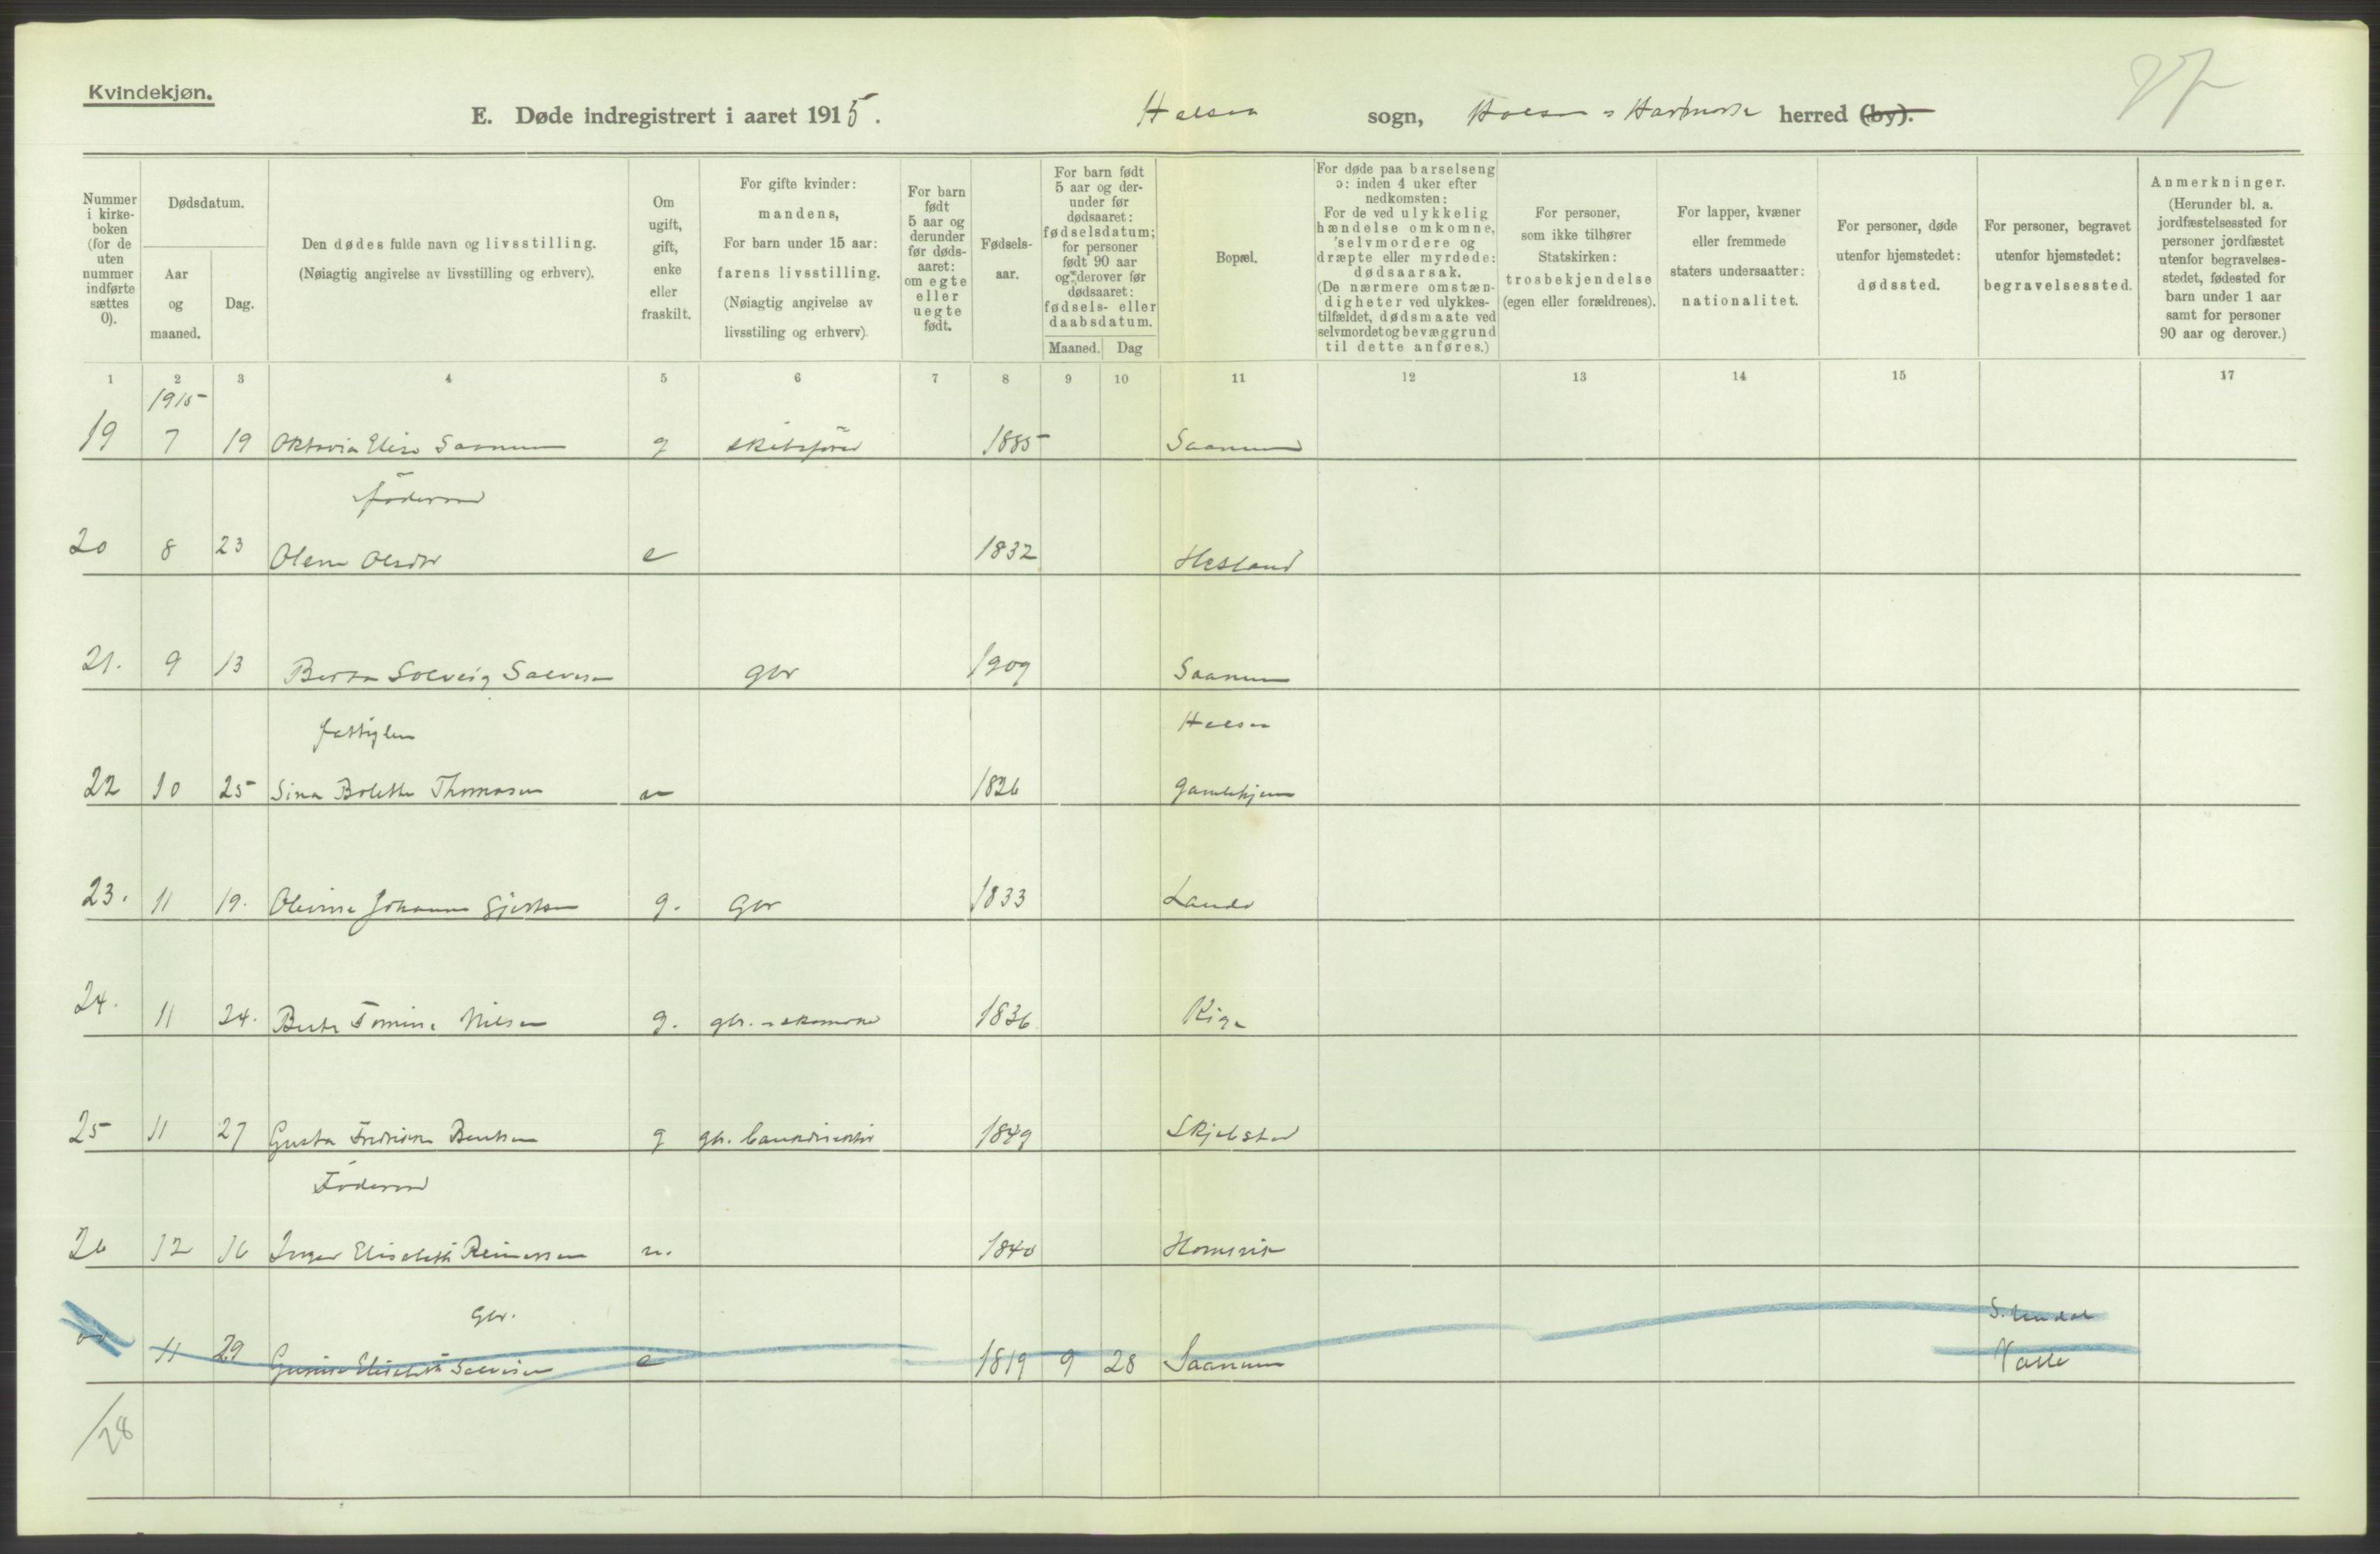 Kvindekjøn.
E. Døde indregistrert i aaret 1915. Halsaa sogn, Halsaa & Hartmark herred (by).
Nummer i kirkeboken (for de uten nummer indførte sættes 0).
Dødsdatum.
Aar og maaned.
Dag.
Den dødes fulde navn og livsstilling.
(Nøiagtig angivelse av livsstilling og erhverv).
Om ugift, gift, enke eller fraskilt.
For gifte kvinder: mandens,
For barn under 15 aar: farens livsstilling.
(Nøiagtig angivelse av livsstiling og erhverv).
For barn født 5 aar og derunder før dødsaaret: om egte eller uegte født.
Fødselsaar.
For barn født 5 aar og derunder før dødsaaret: fødselsdatum; for personer født 90 aar og derover før dødsaaret: fødsels- eller daabsdatum.
Maaned. Dag
Bopæl.
For døde paa barselseng ɔ: inden 4 uker efter nedkomsten:
For de ved ulykkelig hændelse omkomne, selvmordere og dræpte eller myrdede: dødsaarsak.
(De nærmere omstændigheter ved ulykkestilfældet, dødsmaate ved selvmordet og bevæggrund til dette anføres.)
For personer, som ikke tilhører Statskirken: trosbekjendelse (egen eller forældrenes).
For lapper, kvæner eller fremmede staters undersaatter: nationalitet.
For personer, døde utenfor hjemstedet: dødssted.
For personer, begravet utenfor hjemstedet: begravelsessted.
Anmerkninger.
(Herunder bl. a. jordfæstelsessted for personer jordfæstet utenfor begravelsesstedet, fødested for barn under 1 aar samt for personer 90 aar og derover.)
1 2 3 4 5 6 7 8 9 10 11 12 13 14 15 17
1915
19 7 19 Oktavia Elise Saanum g skibsfører 1885 Saanum
Føderaad
20 8 23 Olene Olsdtr e 1832 Hesland
21. 9 13 Berta Solveig Salvesen gbr 1909 Saanum
fattiglem Halsaa
22 10 25 Sina Bolette Thomasen u 1826 Gamlehjem
23. 11 19. Olevine Johanne Gjertsen g. Gbr 1833 Lande
24. 11 24. Berte Tomine Nilsen g. gbr. 1836 Rige
25 11 27 Gusta Fredrikke Bentsen g gbr. 1849 Skjebstad
Føderaad
26 12 16 Inger Elisabeth Reinertsen u. 1840 Homsvik
Gbr. S. Undal
11 29 Gunnise Elisabeth Salvesen e 1819 9 28 Saanum Valle
/28